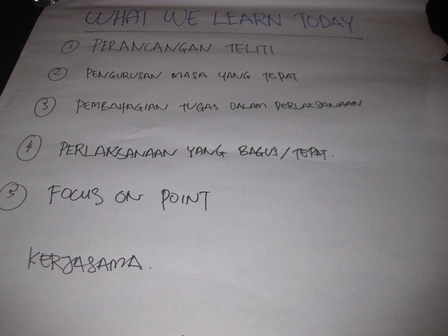 WHAT WE LEARN TODAY.
① PERANCANGAN TELITI
② PENGURUSAN MASA YANG TEPAT
③ PEMBAHAGIAN TUGAS DALAM PERLAKSANAAN
④ PERLAKSANAAN YANG BAGUS/TEPAT.
⑤ FOCUS ON POINT
KERJASAMA.